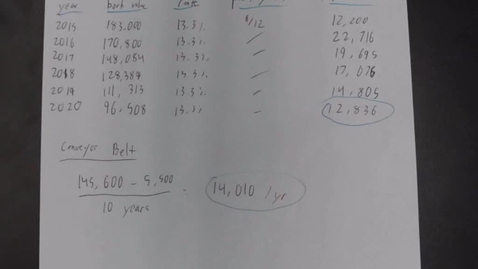 year book value rate
2015 183,000 13.3% 6/12 12,200
2016 170,800 13.3% 22,716
2017 148,084 13.3% 19,695
2018 128,389 13.3% 17,076
2019 111,313 13.3% 14,805
2020 96,508 13.3% 12,836
Conveyor Belt
145,600 - 5,500
10 years
14,010 / yr